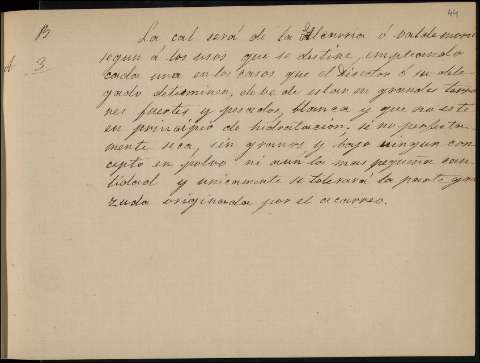 44
B
A 3
La cal será de la Alcarria ó Valdemoro
segun á los usos que se destine, empleando
cada una en los casos que el Director ó su dele-
gado determinen, debe de estar en grandes terro-
nes fuertes y pesados, blanca y que no esté
en principio de hidratacion, si no perfecta-
mente seca, sin granos y bajo ningun con-
cepto en polvo ni aun la mas pequeña can-
tidad y unicamente se tolerará la parte gra-
zuda originada por el acarreo.